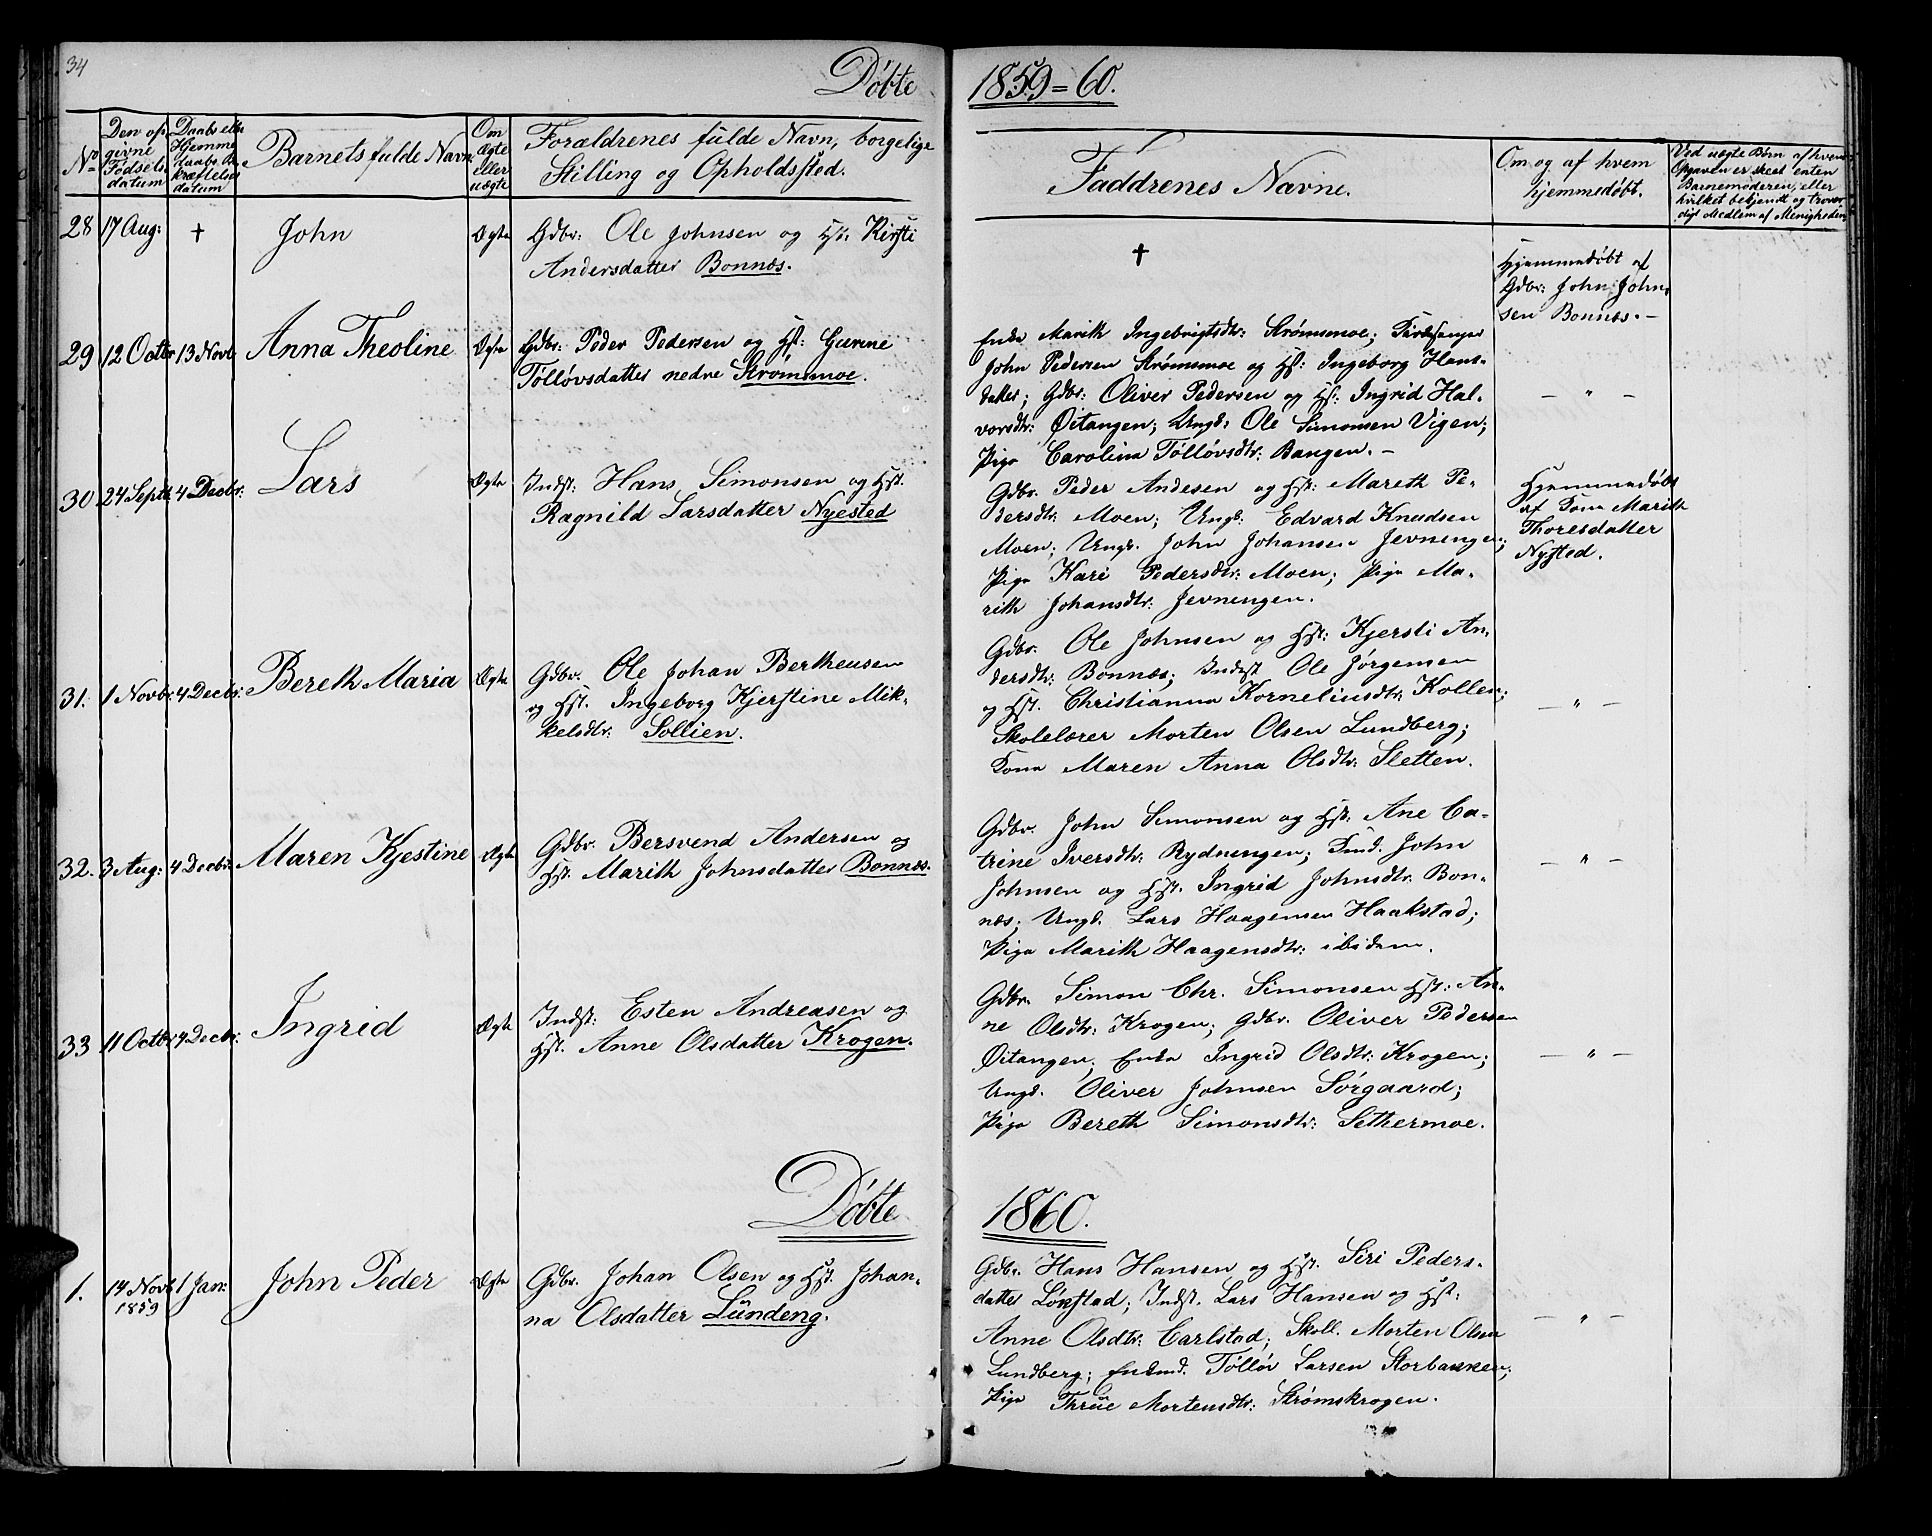 34
Døbte
1859=60.
No
Den op
givne
Fødsels
datum
Daabs eller
Hjemme
daabs Be
kræftelses
datum
Barnets fulde Navn
Om
Ægte
eller
uægte
Forældrenes fulde Navn, borgelige
Stilling og Opholdssted.
Faddrenes Navne.
Om og af hvem
hjemmedøbt.
Ved uægte Børn af hvem
Opgaven er skeet enten
Barnemoderen, eller
hvilket bekjendt og trovær
digt Medlem af Menigheden
28 17 Aug: † John Ægte Gdbr: Ole Johnsen og Hst: Kirsti
Andersdatter Bonnæs.
†
Hjemmedøbt af
Gdbr: John John-
sen Bonnæs. —
29 12 Octbr 13 Novb Anna Theoline Ægte Gdbr: Peder Pedersen og Hst: Gurine
Tølløvsdatter nedre Strømsmoe.
Enke Marith Ingebrigtsdtr: Strømsmoe; Kirkesanger
John Pedersen Strømsmoe og Hst: Ingeborg Hans-
datter; Gdbr: Oliver Pedersen og Hst: Ingrid Hal-
vorsdtr: Øitangen; Ungk: Ole Simonsen Vigen;
Pige Carolina Tølløvsdtr: Bangen. —
— " —
30 24 Septb 4 Decbr: Lars Ægte Indst: Hans Simonsen og Hst.
Ragnild Larsdatter Nyested
Gdbr. Peder Andesen og Hst: Mareth Pe-
dersdtr: Moen; Ungk: Edvard Knudsen
Moen; Ungk. John Johansen Jevningen;
Pige Kari Pedersdtr: Moen; Pige Ma-
rith Johansdtr: Jevningen.
Hjemmedøbt
af Kone Marith
Thoresdatter
Nysted.
31. 1 Novbr. 4 Decbr: Bereth Maria Ægte Gdbr. Ole Johan Bertheusen
og Hst. Ingeborg Kjerstine Mik-
kelsdtr: Sollien.
Gdbr. Ole Johnsen og Hst: Kjersti An-
dersdtr: Bonnæs; Indst Ole Jørgensen
og Hst. Christianna Korneliusdtr: Kollen;
Skolelærer Morten Olsen Lundberg;
Kone Maren Anna Olsdtr: Sletten.
— " —
32. 3 Aug: 4 Decbr: Maren Kjestine Ægte Gdbr. Bersvend Andersen og
Hst. Marith Johnsdatter Bonnæs.
Gdbr. John Simonsen og Hst. Ane Ca-
trine Iversdtr: Rydningen; John
Johnsen og Hst. Ingrid Johnsdtr: Bon-
næs; Ungk. Lars Haagensen Haakstad;
Pige Marith Haagensdtr: ibidem.
— " —
33 11 Octbr 4 Decbr: Ingrid Ægte Indst: Esten Andreasen og
Hst. Anne Olsdatter Krogen.
Gdbr. Simon Chr. Simonsen Hst: An-
ne Olsdtr: Krogen; Gdbr. Oliver Pedersen
Øitangen; Enke Ingrid Olsdtr: Krogen;
Ungk. Oliver Johnsen Sørgaard;
Pige Bereth Simonsdtr: Sethermoe.
— " —
Døbte
1860.
1. 14 Novb 1 Jan: John Peder Ægte Gdbr. Johan Olsen og Hst. Johan-
1859
na Olsdatter Lündeng.
Gdbr. Hans Hansen og Hst. Siri Peders-
datter Løvstad; Indst. Lars Hansen og Hst:
Anne Olsdtr: Carlstad; Skoll. Morten Olsen
Lundberg; Enkmd. Tølløv Larsen Storbakken;
Pige Thrüe Mortensdtr: Strømskrogen.
— " —